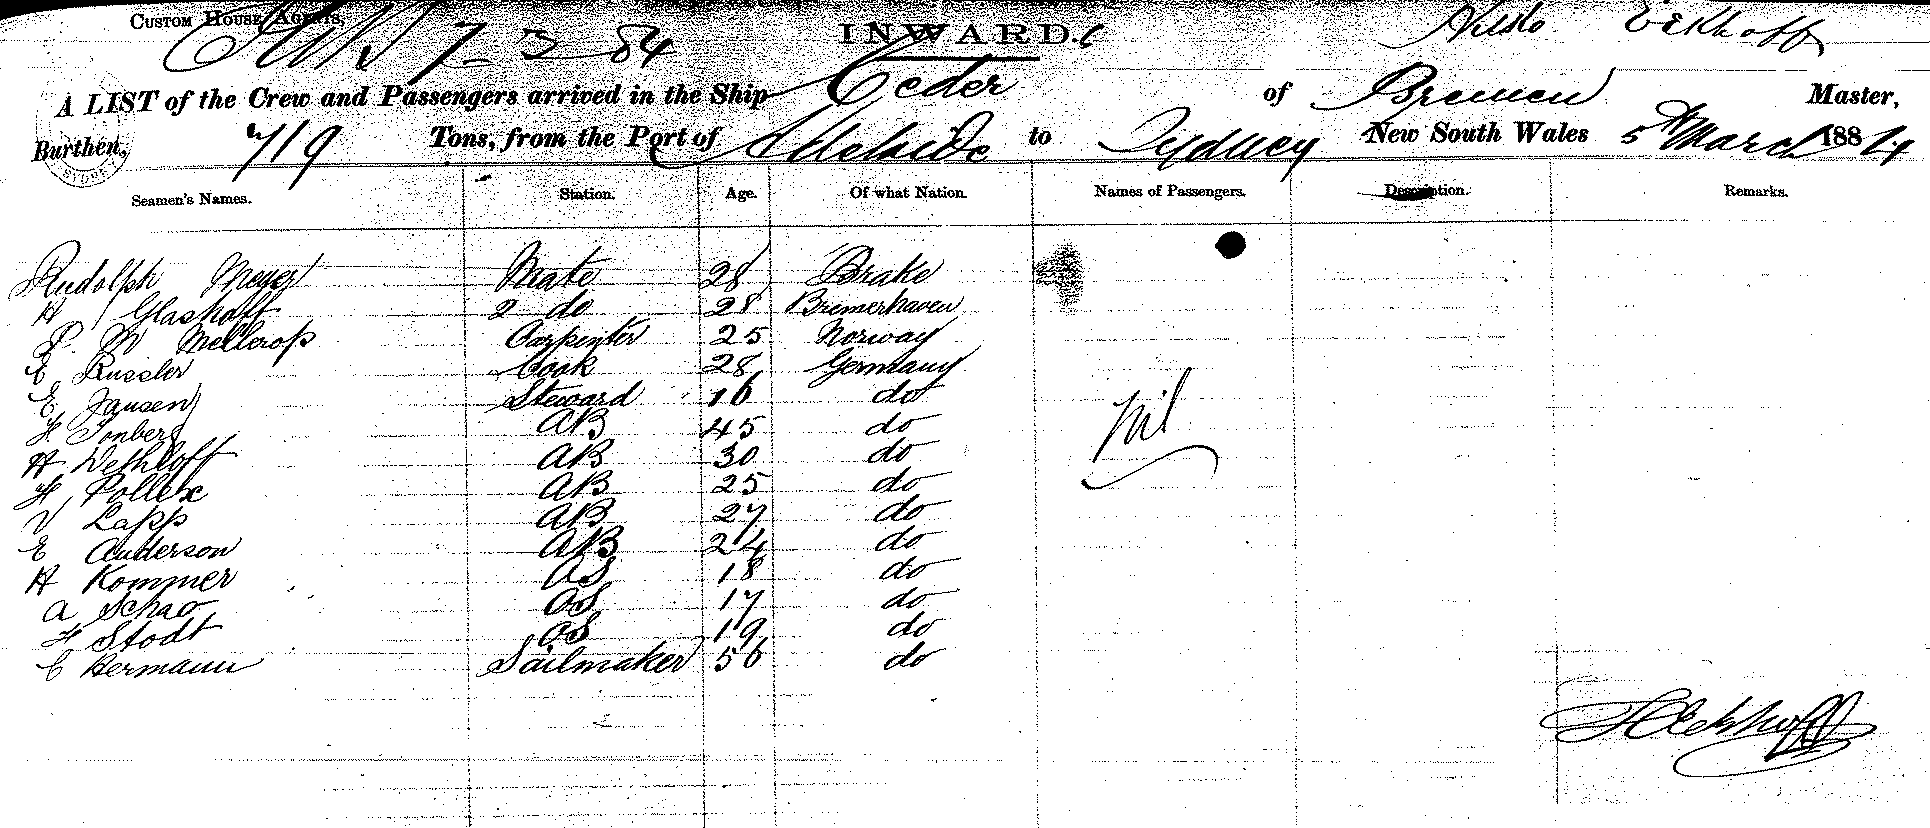 CUSTOM HOUSE AGENTS,
7 - 3 - 84
INWARD.
Eckhoff
A LIST of the Crew and Passengers arrived in the Ship Ceder of Bremen Master,
Burthen, 719 Tons, from the Port of Adelaide to Sydney New South Wales 5th March 1884
Seamen's Names. Station. Age. Of what Nation. Names of Passengers. Description. Remarks.
Rudolph Meyer Mate 28 Brake
H Glashoff 2 do 28 Bremerhaven
P. M Mellerop Carpenter 25 Norway
E Russler Cook 28 Germany
E Jansen Steward 16 do
H. Tonberg AB 45 do
H Dethloff AB 30 do
H Pollex AB 25 do
V Lapp AB 27 do
E Anderson AB 24 do
H Kommer OS 18 do
A Schao OS 17 do
H Stodt OS 19 do
C Hermann Sailmaker 56 do
Nil
H Eckhoff